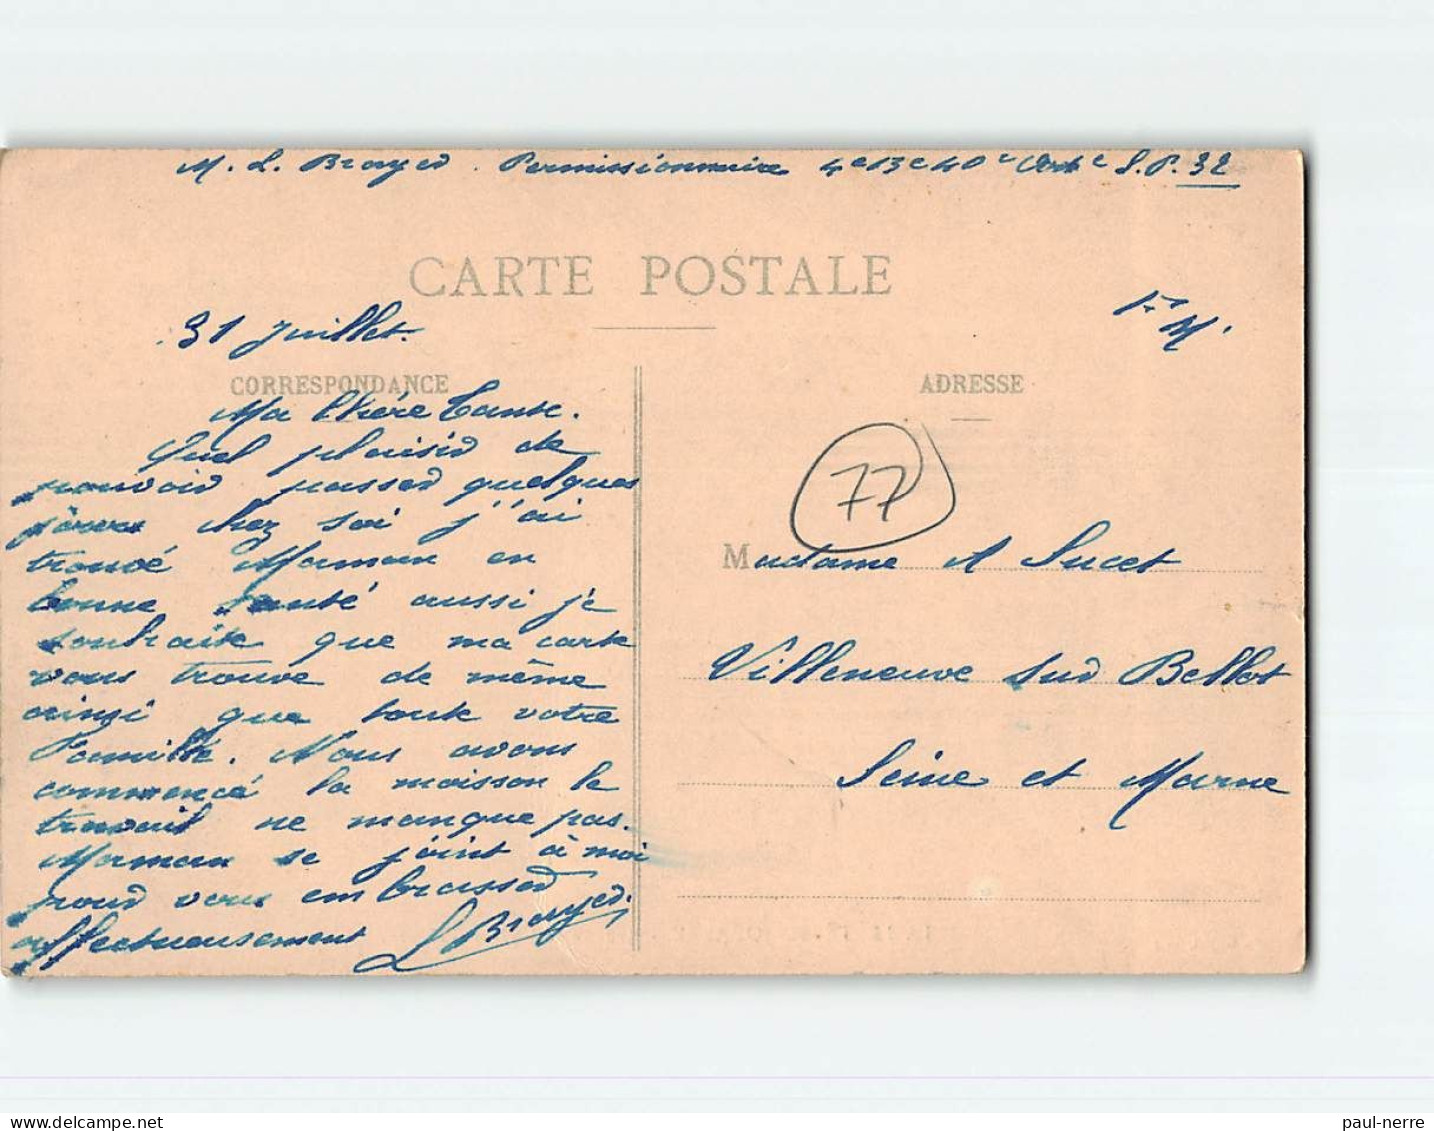 M. L. Brayer. Permissionnaire 4e Bie 40e Artie S.P. 32
CARTE POSTALE
F.M.
31 Juillet.
CORRESPONDANCE
Ma Chère Tante.
Quel plaisir de
pouvoir passer quelques
jours chez soi j'ai
trouvé Maman en
bonne santé aussi je
souhaite que ma carte
vous trouve de même
ainsi que toute votre
Famille. Nous avons
commencé la moisson le
travail ne manque pas.
Maman se joint à moi
pour vous embrasser
affectueusement
L Brayer.
ADRESSE
77
Madame A Sucet
Villeneuve sur Bellot
Seine et Marne
paul-nerre